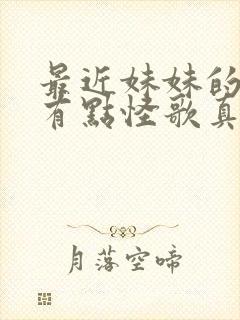 最近妹妹的
有點怪歌真
月落空啼